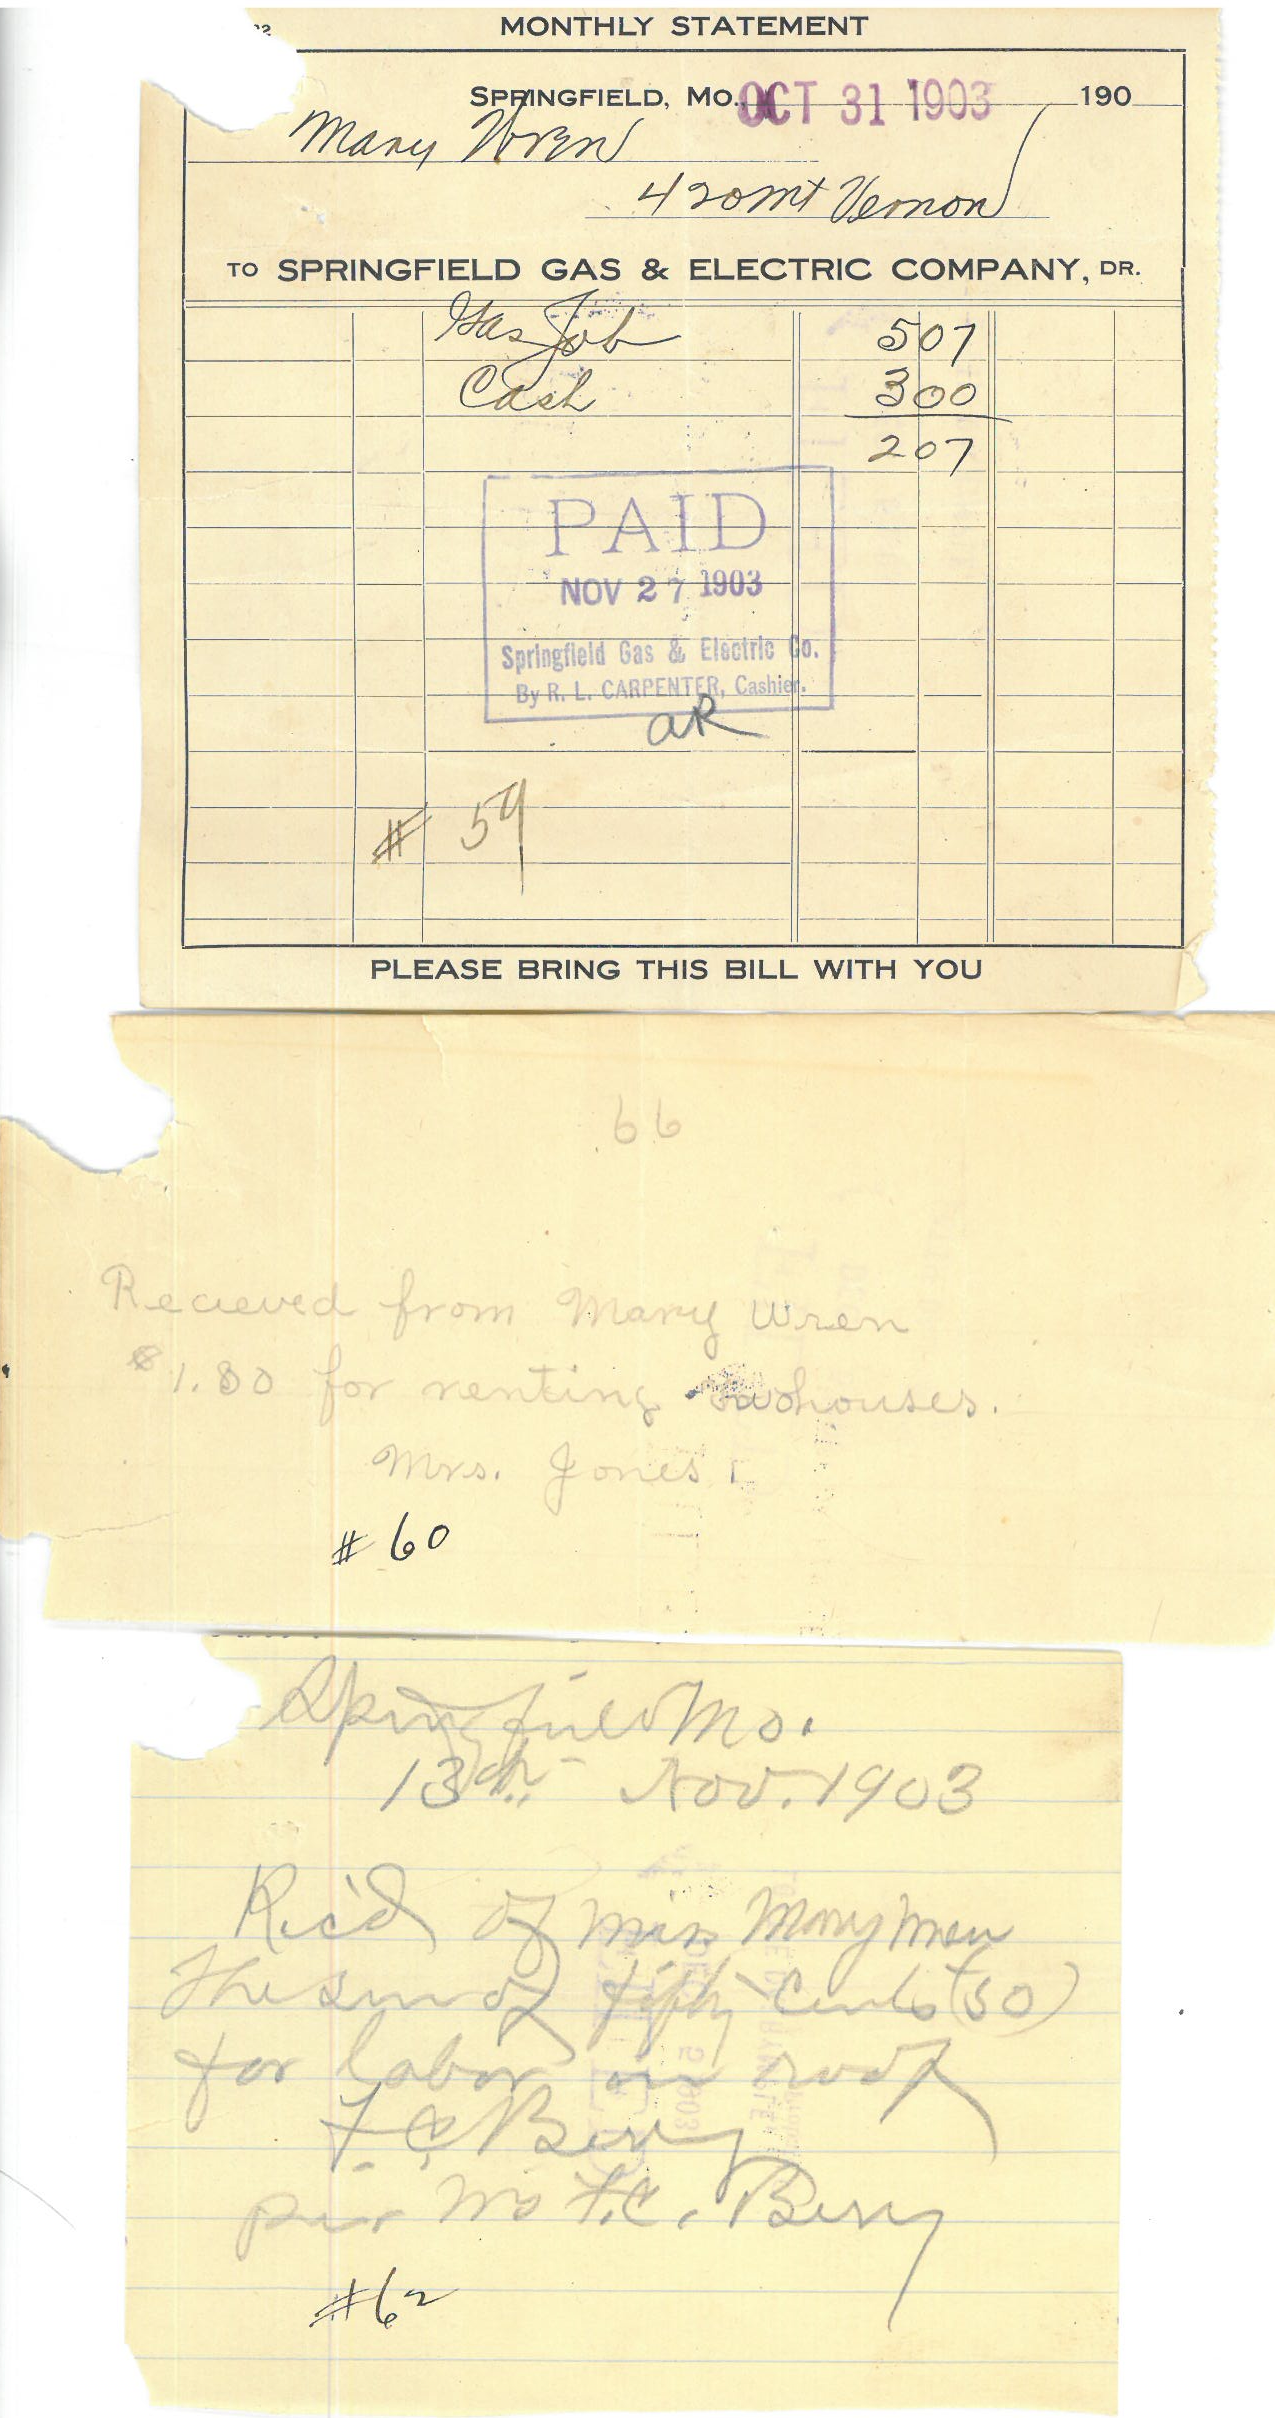 MONTHLY STATEMENT
SPRINGFIELD, MO., OCT 31 1903 190
Mary Wren
420 Mt Vernon
TO SPRINGFIELD GAS & ELECTRIC COMPANY, DR.
Gas Job 507
Cash 300
207
PAID
NOV 27 1903
Springfield Gas & Electric Co.
By R. L. CARPENTER, Cashier.
aR
# 59
PLEASE BRING THIS BILL WITH YOU
66
Recieved from Mary Wren
$1.80 for renting houses.
Mrs. Jones
# 60
Springfield Mo.
13th Nov. 1903
Rec'd of Mary Wren
the sum of fifty cents (50)
for labor on roof
F. C. Berry
per F. C. Berry
#62